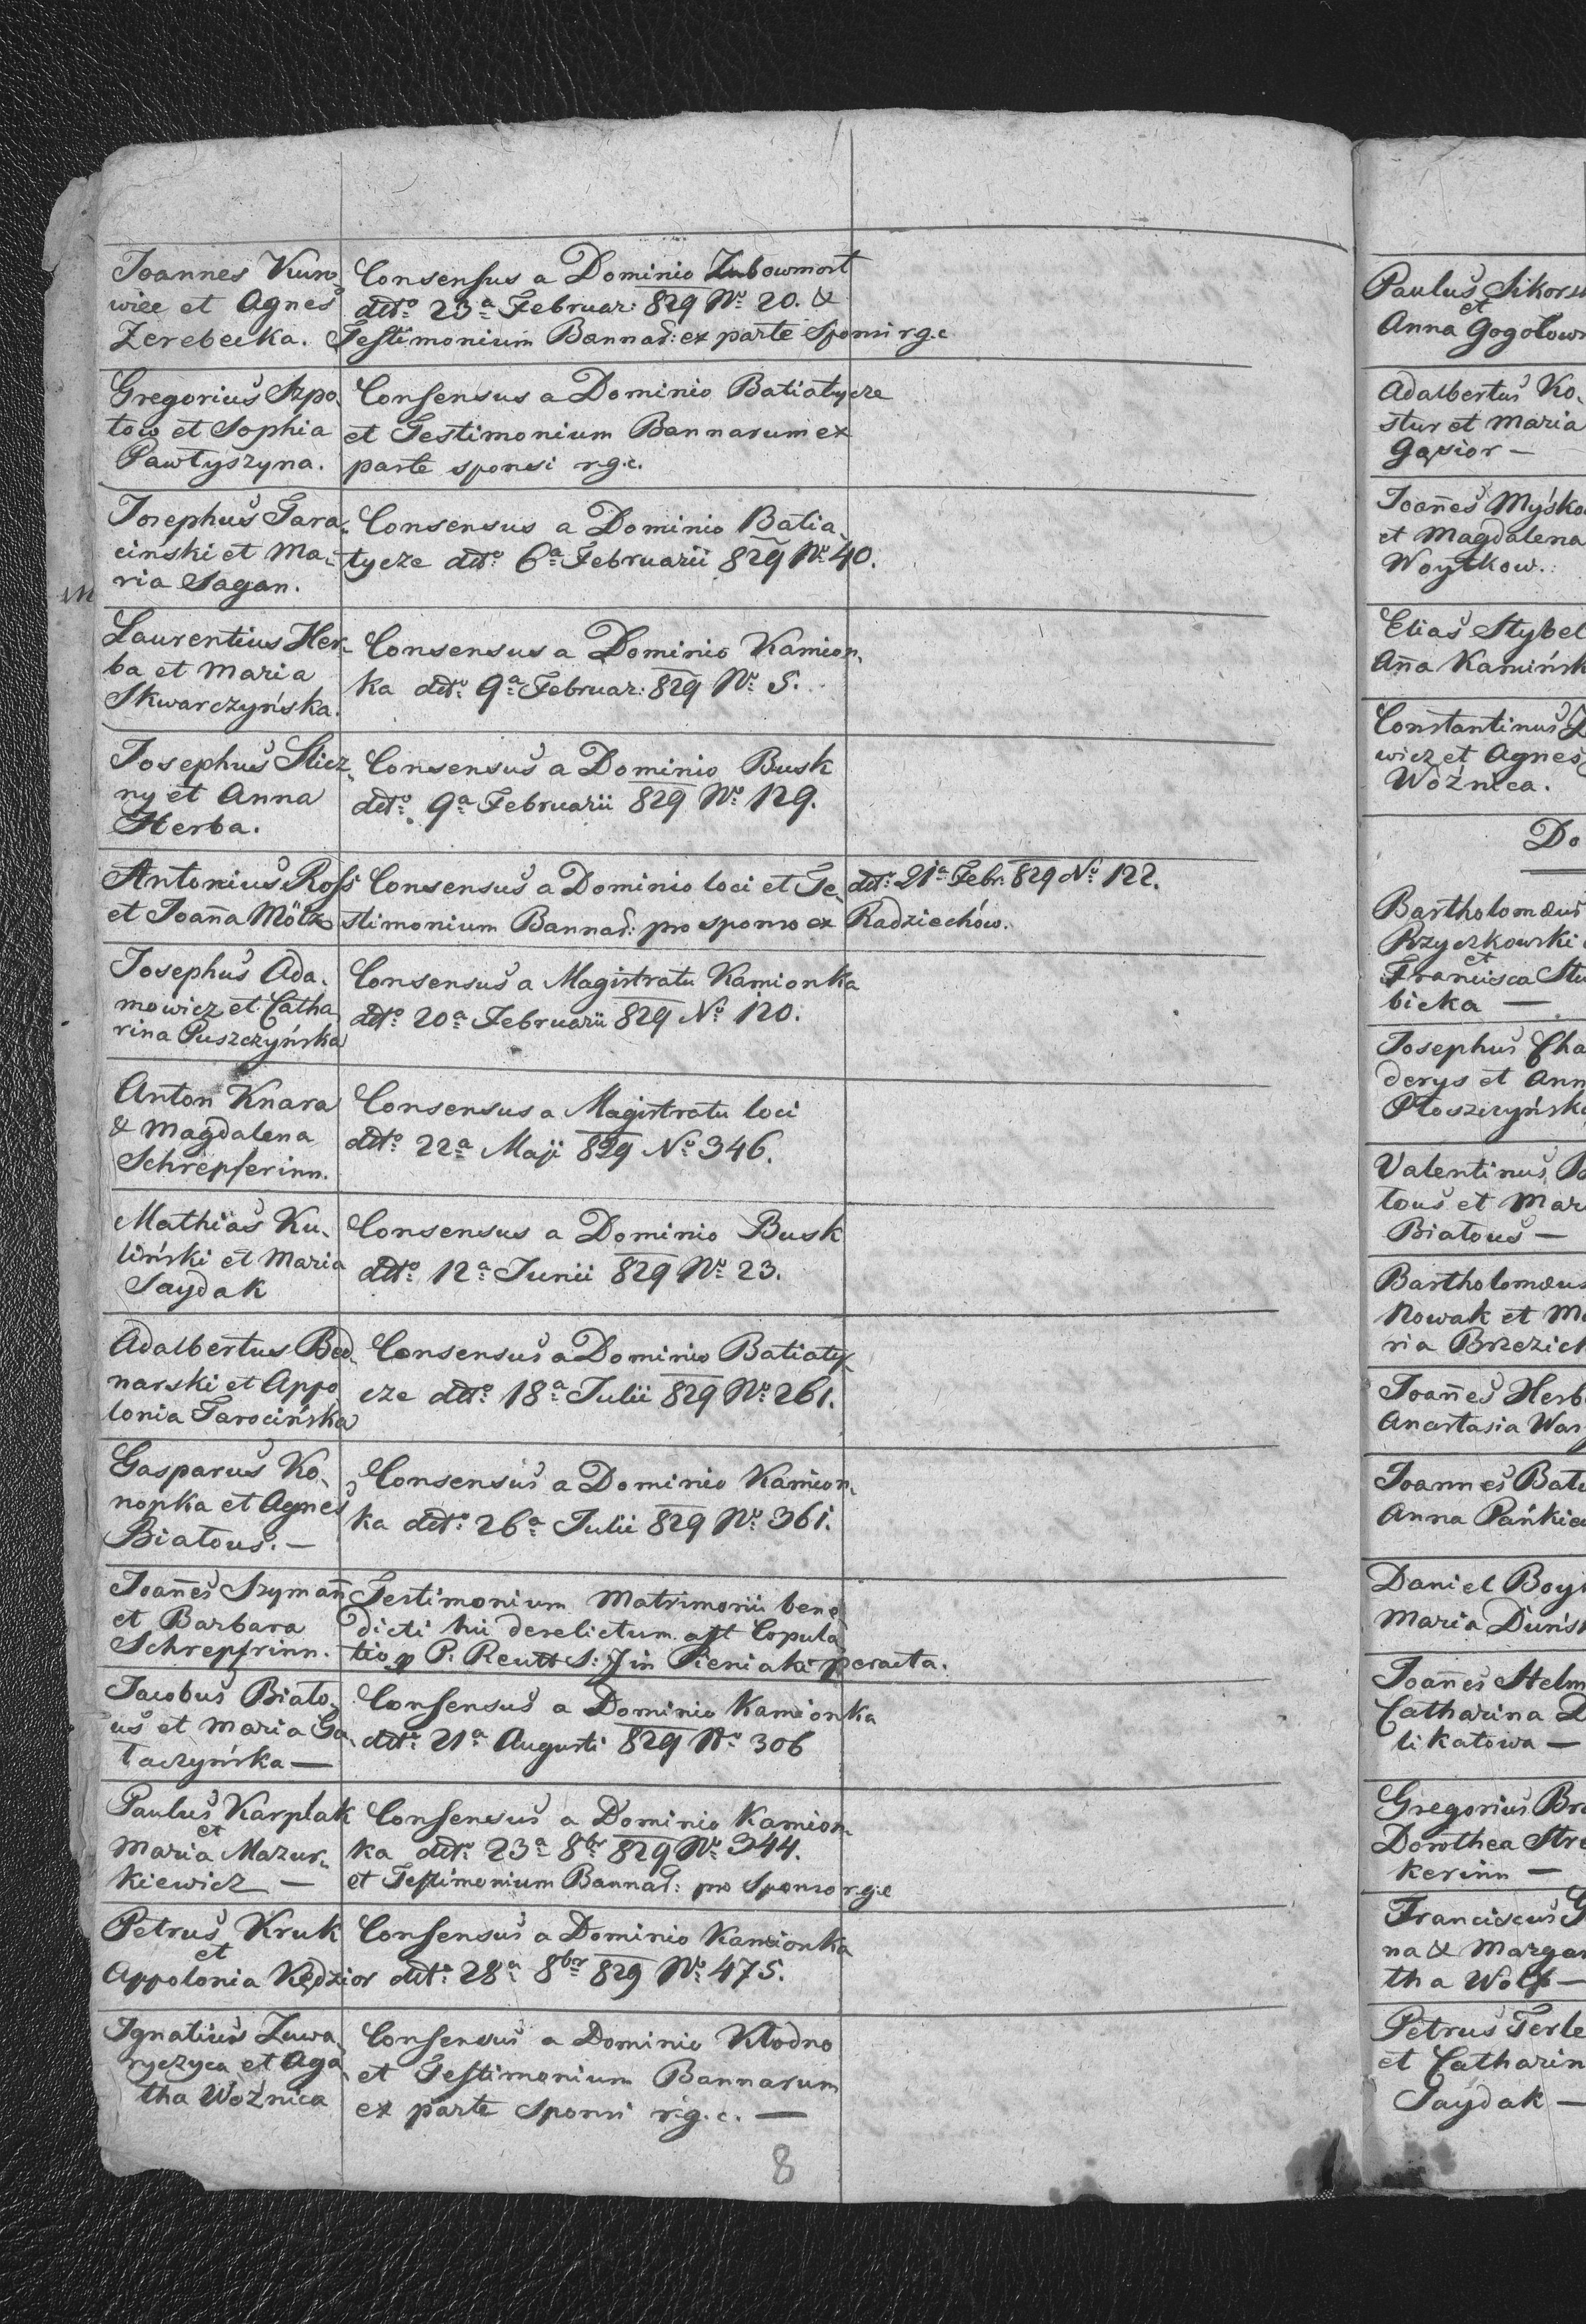 Joannes Kuno-
wice et Agnes
Zerebecka.
Consensus a Dominio Zubowmost
ddto 23a Februar: 829 No 20. &
Testimonium Bannar: ex parte Sponsi r.g.c
Gregorius Szpo-
tow et Sophia
Pawłyszyna.
Consensus a Dominio Batiatycze
et Testimonium Bannarum ex
parte sponsi r.g.c.
Josephus Tara-
cinski et Ma-
ria Sagan.
Consensus a Dominio Batia-
tycze ddto 6a Februarii 829 No 40.
Laurentius Her-
ba et Maria
Skwarczyńska.
Consensus a Dominio Kamion-
ka ddto 9a Februar: 829 No 5.
Josephus Slicz-
ny et Anna
Herba.
Consensus a Dominio Busk
ddto 9a Februarii 829 No 129.
Antonius Ross
et Joanna Mölz
Consensus a Dominio loci et Te- ddto 21a Febr: 829 No 122.
stimonium Bannar: pro sponso ex Radziechów.
Josephus Ada-
mowicz et Catha
rina Puszczyńska
Consensus a Magistratu Kamionka
ddto 20a Februarii 829 No 120.
Anton Knara
& Magdalena
Schrepferinn.
Consensus a Magistratu loci
ddto 22a Maji 829 No 346.
Mathias Ku-
liński et Maria
Saydak
Consensus a Dominio Busk
ddto 12a Junii 829 No 23.
Adalbertus Bed-
narski et Appo
lonia Tarocińska
Consensus a Dominio Batiaty-
cze ddto 18a Julii 829 No 261.
Gasparus Ko-
nopka et Agnes
Białous. —
Consensus a Dominio Kamion-
ka ddto 26a Julii 829 No 361.
Joannes Szymań
et Barbara
Schrepfrinn.
Testimonium Matrimonii bene
dicti hii derelictum ast Copula
tio p P. Reutt S: J in Pieniaki peracta.
Jacobus Biało-
us et Maria Ga-
łaczyńska —
Consensus a Dominio Kamionka
ddto 21a Augusti 829 No 306
Paulus Karplak
et
Maria Mazur-
kiewicz —
Consensus a Dominio Kamion-
ka ddto 23a 8br 829 No 344.
et Testimonium Bannar: pro Sponso r.g.c
Petrus Kruk
et
Appolonia Kędzior
Consensus a Dominio Kamionka
ddto 28a 8br 829 No 475.
Ignatius Zuwa-
ryczyca et Aga-
tha Woźnica
Consensus a Dominio Kłodno
et Testimonium Bannarum
ex parte Sponsi r.g.c. —
8
Paulus
et
Anna
Adalbertus Ko-
stur et Maria
Gąsior —
Joannes
et Magdalena
Woytkow.
Elias Stybel
Anna
Constantinus
wicz et Agnes
Woźnica.
Bartholomæus
Przyczkowski
et
Francisca
bicka —
Josephus
derys et
Valentinus
tous et
Białous —
Bartholomæus
Nowak et
ria
Joannes
Anastasia
Joannes
Anna
Daniel
Maria
Joannes
Catharina
likatowa —
Gregorius
Dorothea
kerinn —
Franciscus
na &
tha Wolf —
Petrus
et
Saydak —